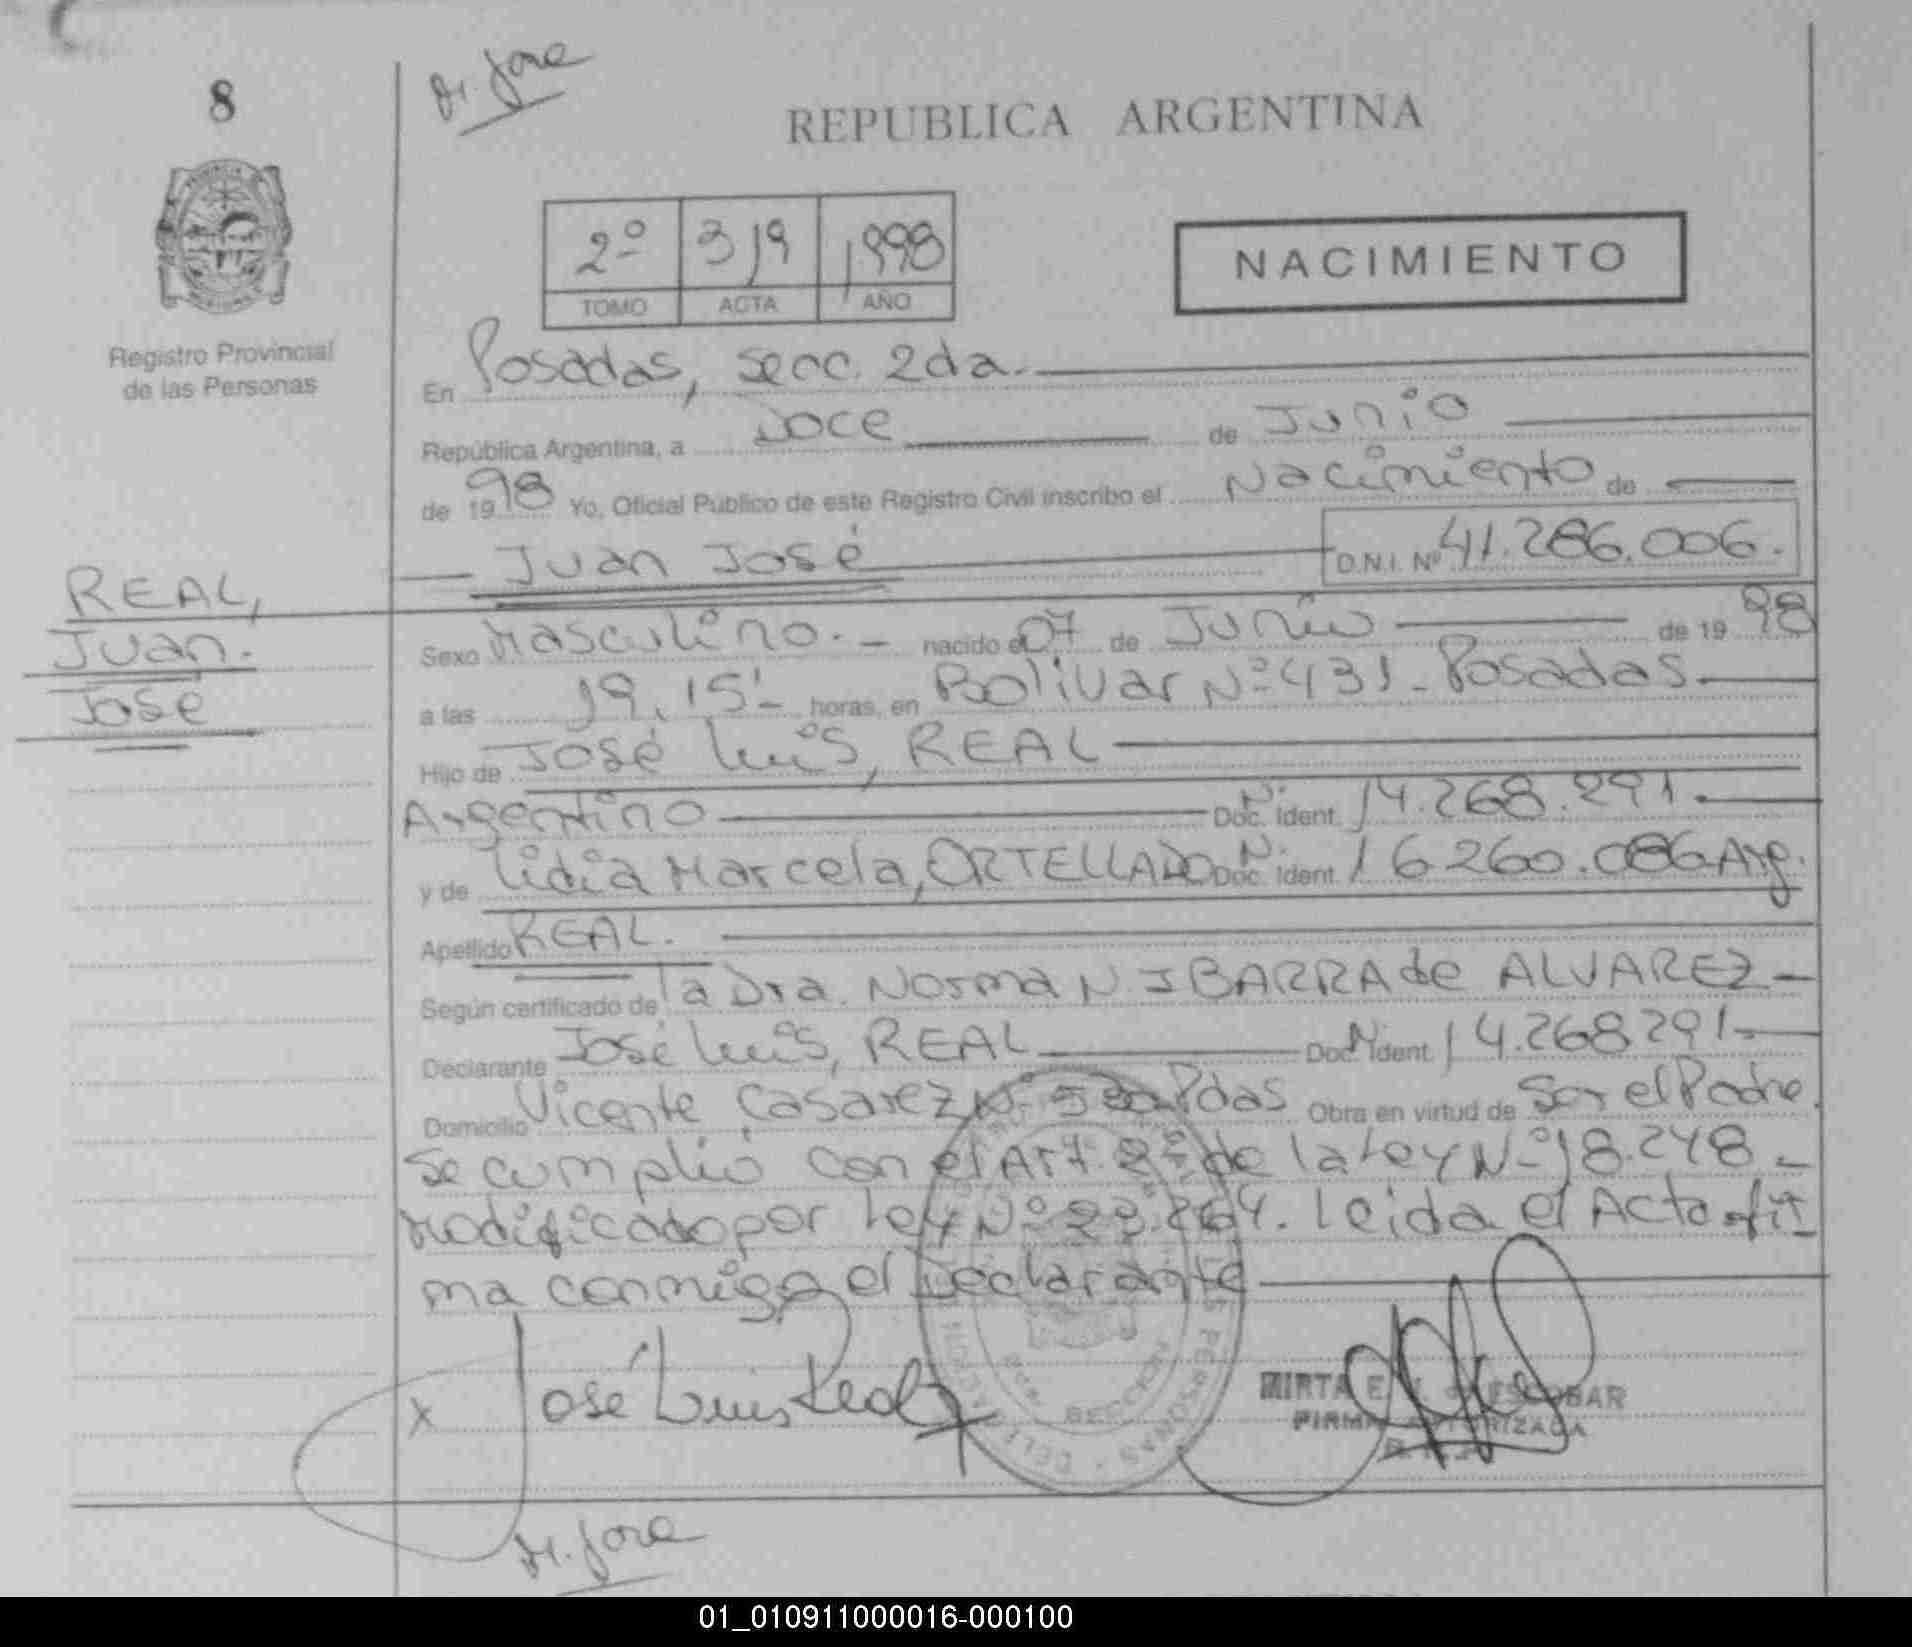 8
H. Jose
REPUBLICA ARGENTINA
2º 319 1998
TOMO ACTA AÑO
NACIMIENTO
Registro Provincial
de las Personas
En Posadas, secc. 2da.
República Argentina, a Doce de Junio
de 1998 Yo, Oficial Público de este Registro Civil inscribo el Nacimiento de
Juan José D.N.I. Nº 41.286.006.
REAL,
Juan.
José
Sexo Masculino.- nacido el 07 de Junio de 1998
a las 19,15'- horas, en Bolivar Nº 431 - Posadas.
Hijo de José Luis, REAL
Argentino Doc. N. Ident. 14.268.291.
y de Lidia Marcela, ORTELLADO Doc. N. Ident. 16260.086 Arg.
Apellido REAL.
Según certificado de la Dra. Norma N. IBARRA de ALVAREZ
Declarante José Luis, REAL Doc. N. Ident. 14.268291.
Domicilio Vicente Casarez Nº Pdas Obra en virtud de Ser el Padre.
Se cumplió con el Art. 2º de la Ley Nº 18.248 -
Modificado por Ley Nº 23.264. Leida el Acta fir
ma conmigo el Declarante
x José Luis Real
MIRTA E. ESCOBAR
FIRMA AUTORIZADA
SECCION
H. Jose
01_010911000016-000100